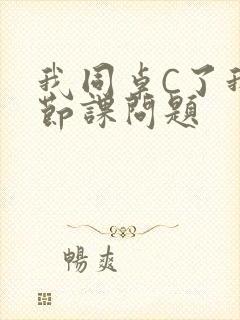 我同桌C了我
节课问题
畅爽